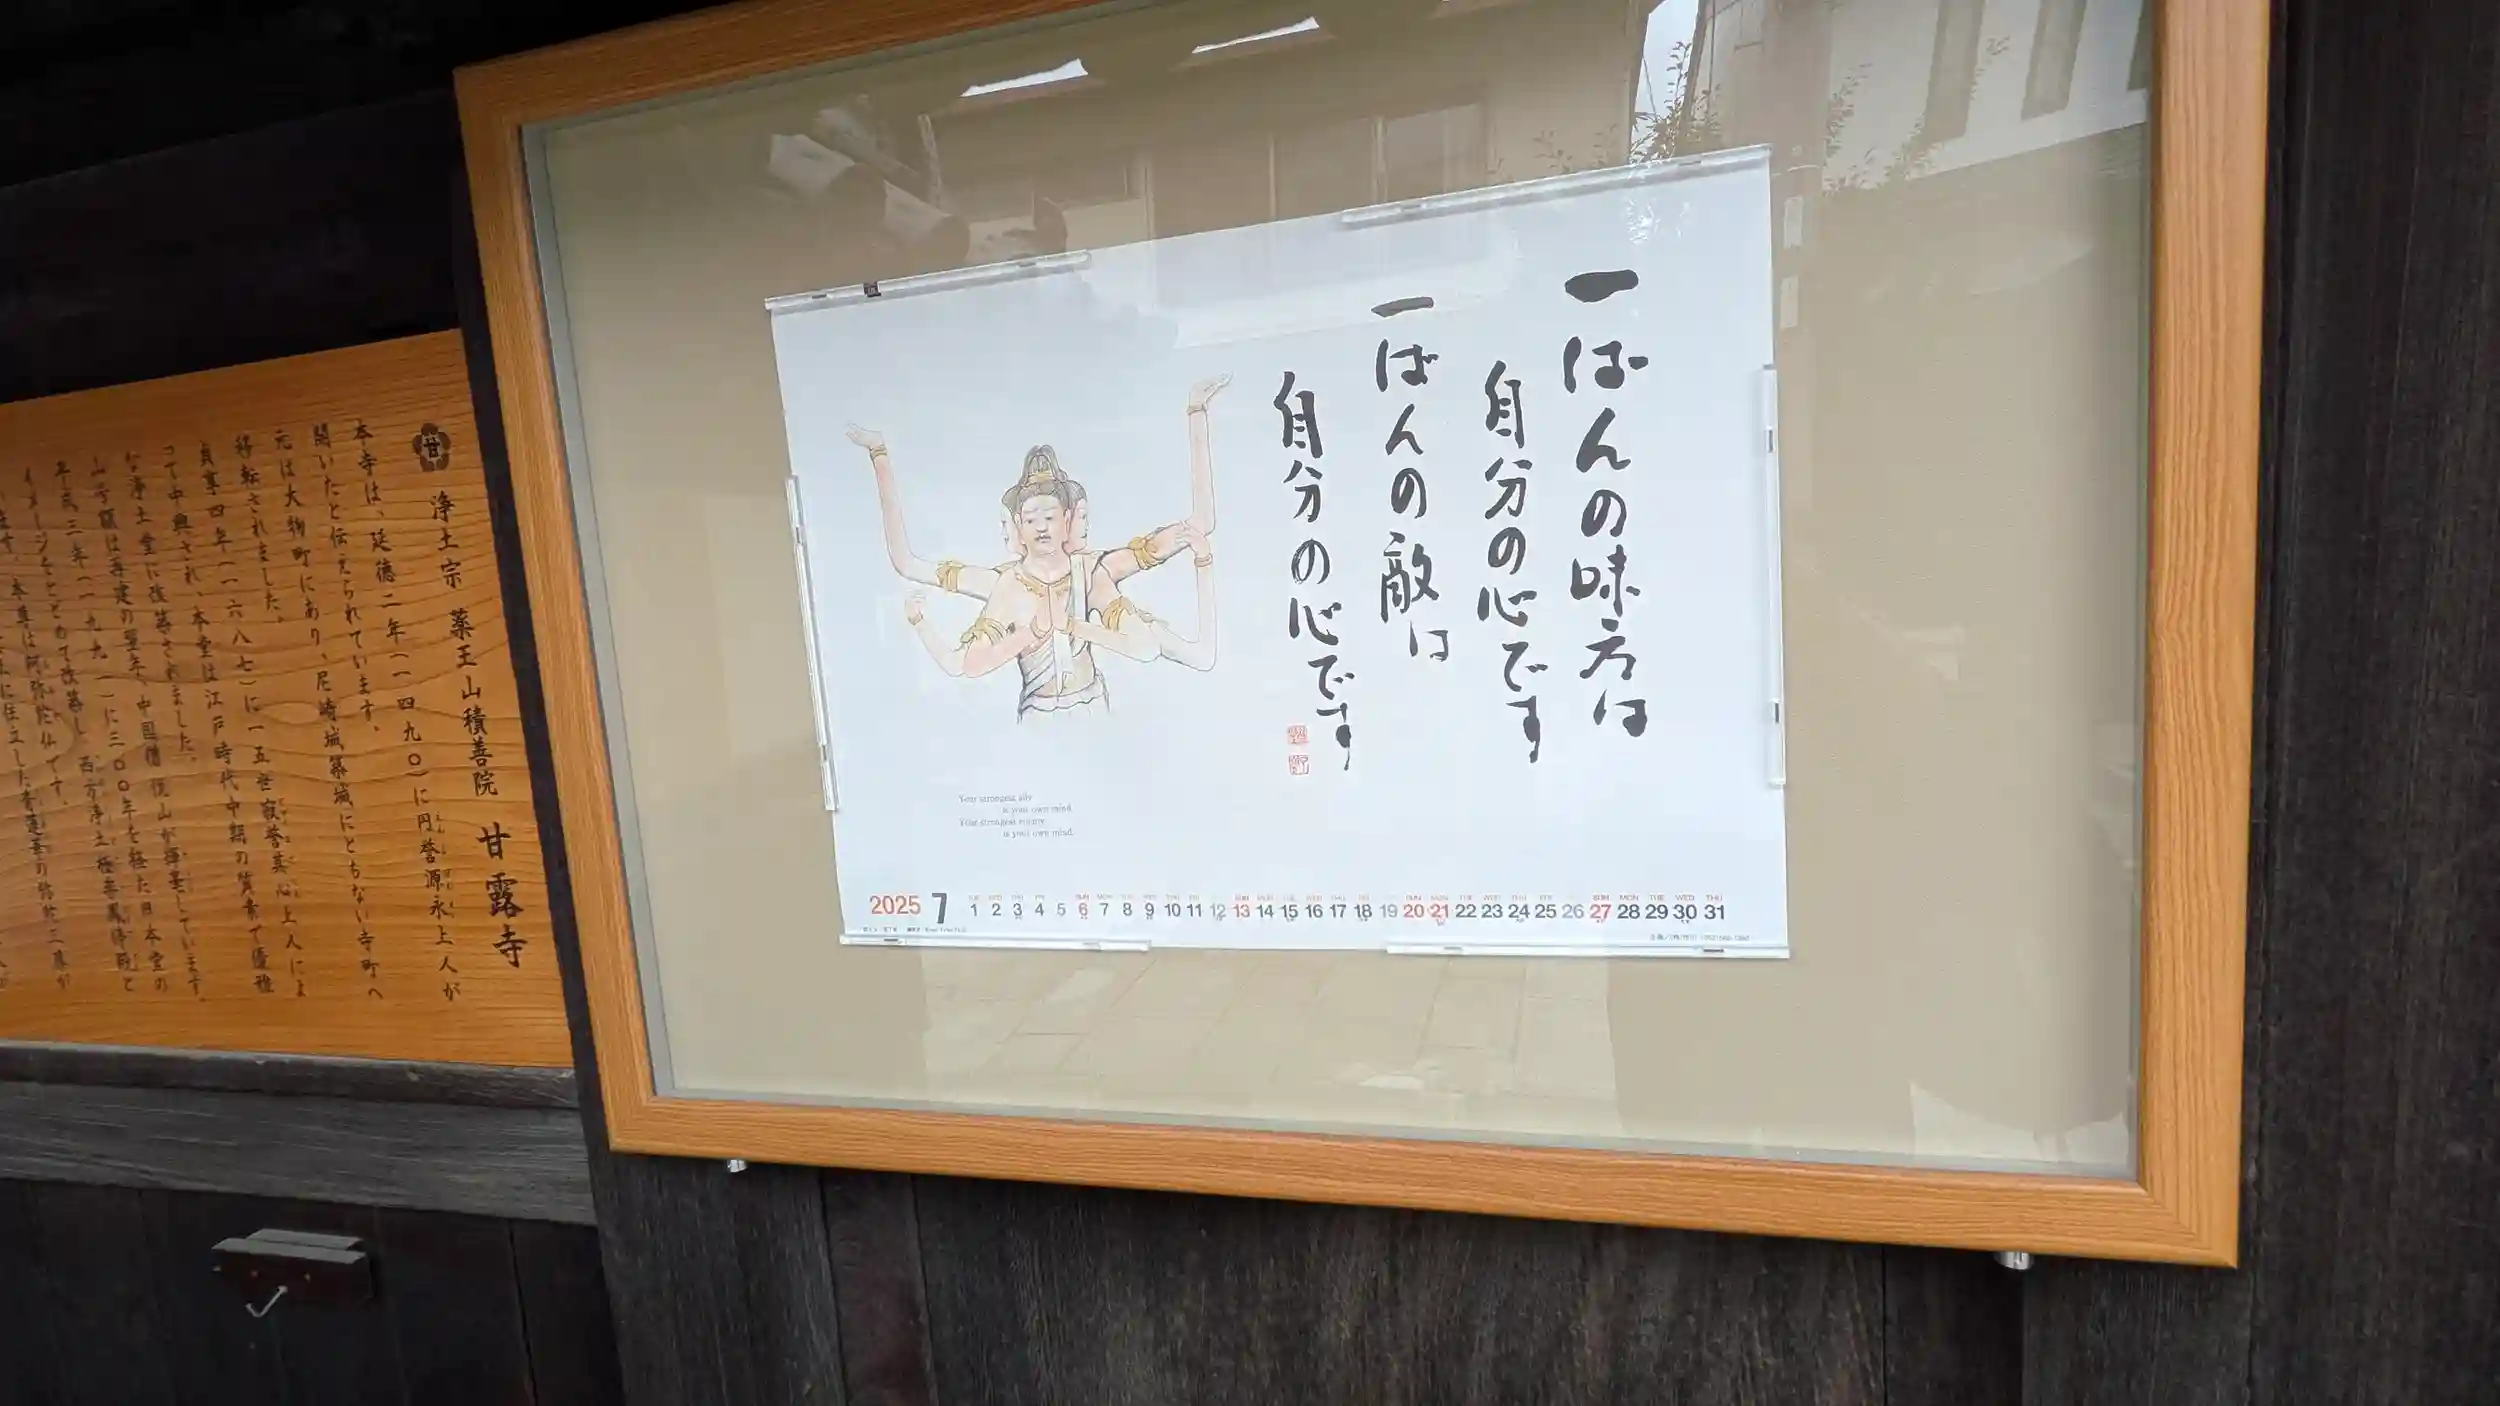 一ばんの味方は
自分の心です
一ばんの敵は
自分の心です
Your strongest ally
is your own mind.
Your strongest enemy
is your own mind.
2025 7
TUE WED THU FRI SAT SUN MON TUE WED THU FRI SAT SUN MON TUE WED THU FRI SAT SUN MON TUE WED THU FRI SAT SUN MON TUE WED THU
1 2 3 4 5 6 7 8 9 10 11 12 13 14 15 16 17 18 19 20 21 22 23 24 25 26 27 28 29 30 31
甘 浄土宗 薬王山積善院 甘露寺
本寺は、延徳二年(一四九〇)に円誉源永上人が
開いたと伝えられています。
元は大物町にあり、尼崎城築城にともない寺町へ
移転されました。
貞享四年(一六八七)に一五世寂誉真心上人によ
って中興され、本堂は江戸時代中期の質素で優雅
な浄土堂に改築されました。
山号額は再建の翌年、中国僧 悦山が揮毫しています。
平成三年(一九九一)に三〇〇年を経た旧本堂の
イメージをとどめて改築し、西方浄土 極楽鳳停殿と